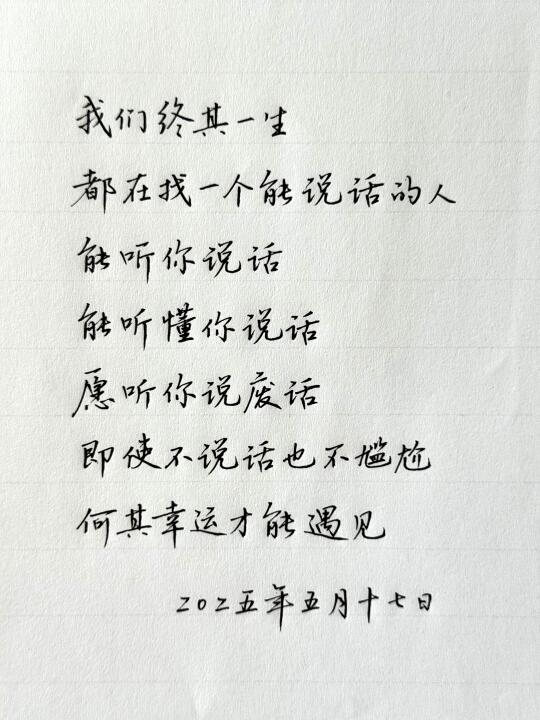 我们终其一生
都在找一个能说话的人
能听你说话
能听懂你说话
愿听你说废话
即使不说话也不尴尬
何其幸运才能遇见
202五年五月十七日